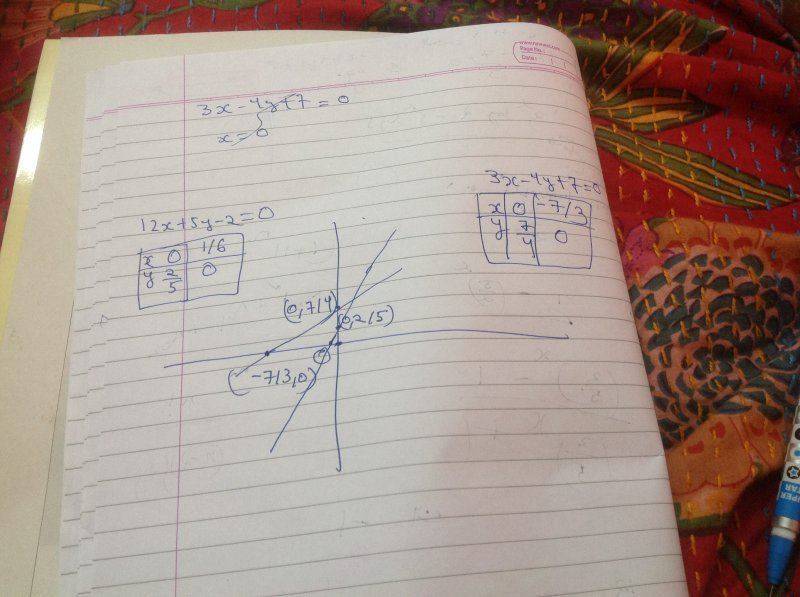 Page No.:
Date:
3x - 4y + 7 = 0
x = 0
3x - 4y + 7 = 0
x 0 -7/3
y 7/4 0
12x + 5y - 2 = 0
x 0 1/6
y 2/5 0
(0, 7/4)
(0, 2/5)
(-7/3, 0)
SUPER